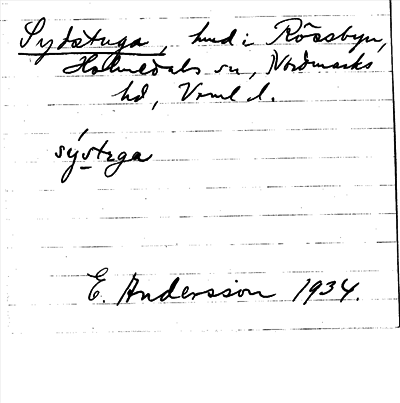 Sydstuga, hmd i Rössbyn,
Holmedals sn, Nordmarks
hd, Vrml d.
sýstuga
E. Andersson 1934.